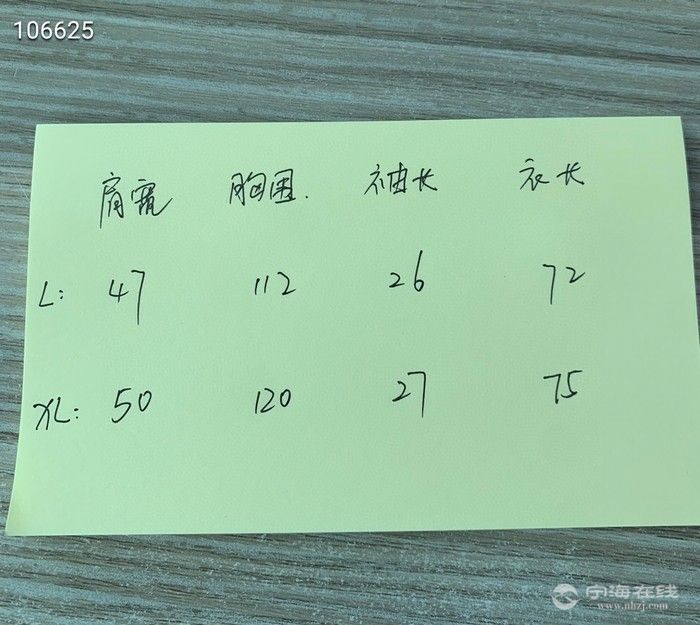 106625
肩宽 胸围. 袖长 衣长
L: 47 112 26 72
XL: 50 120 27 75
宁海在线
www.nhzj.com